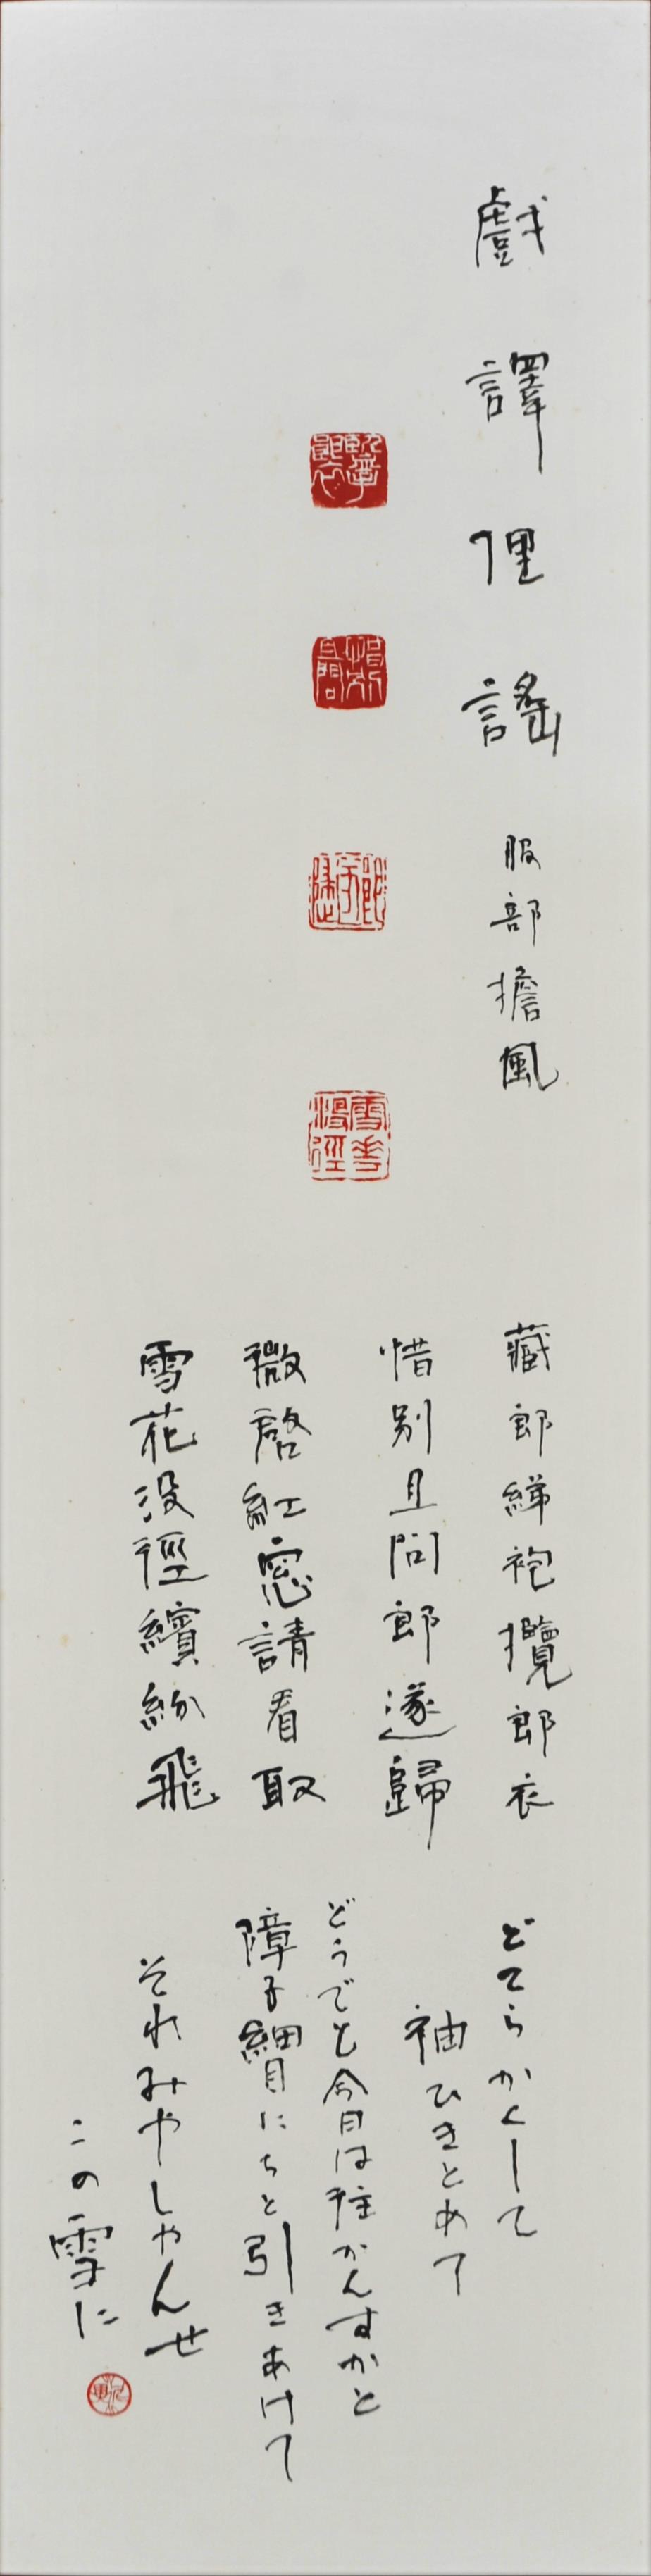 戲譯俚謠 服部擔風
藏郎綈袍攬郎衣
惜別且問郎遂歸
微啓紅窓請看取
雪花没徑繽紛飛
どてらかくして
袖ひきとめて
どうでも今日は往かんすかと
障子細目にちと引きあけて
それみやしやんせ
この雪に
惜別且問
雪花没徑